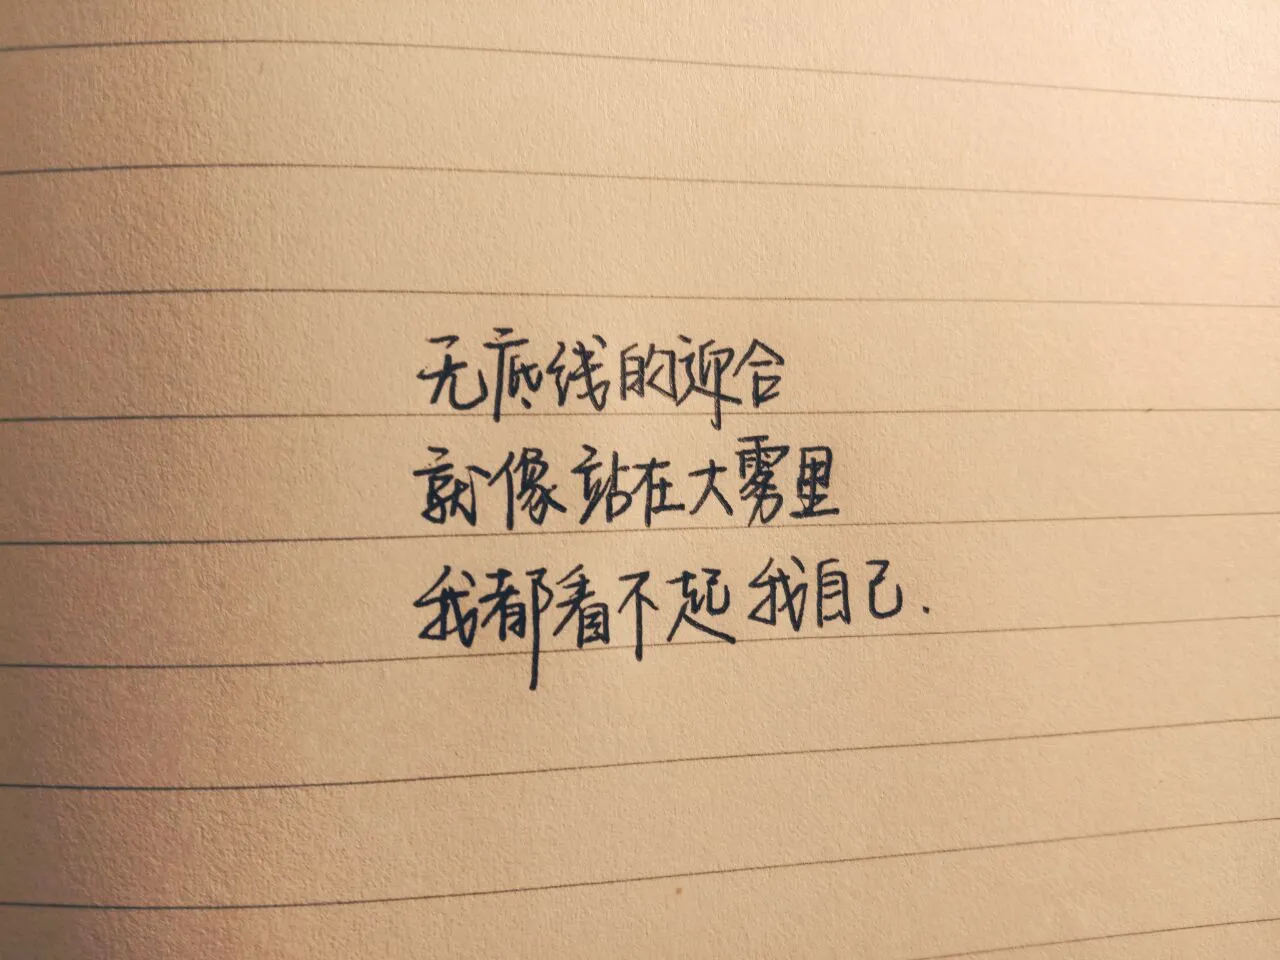 无底线的迎合
就像站在大雾里
我都看不起我自己.